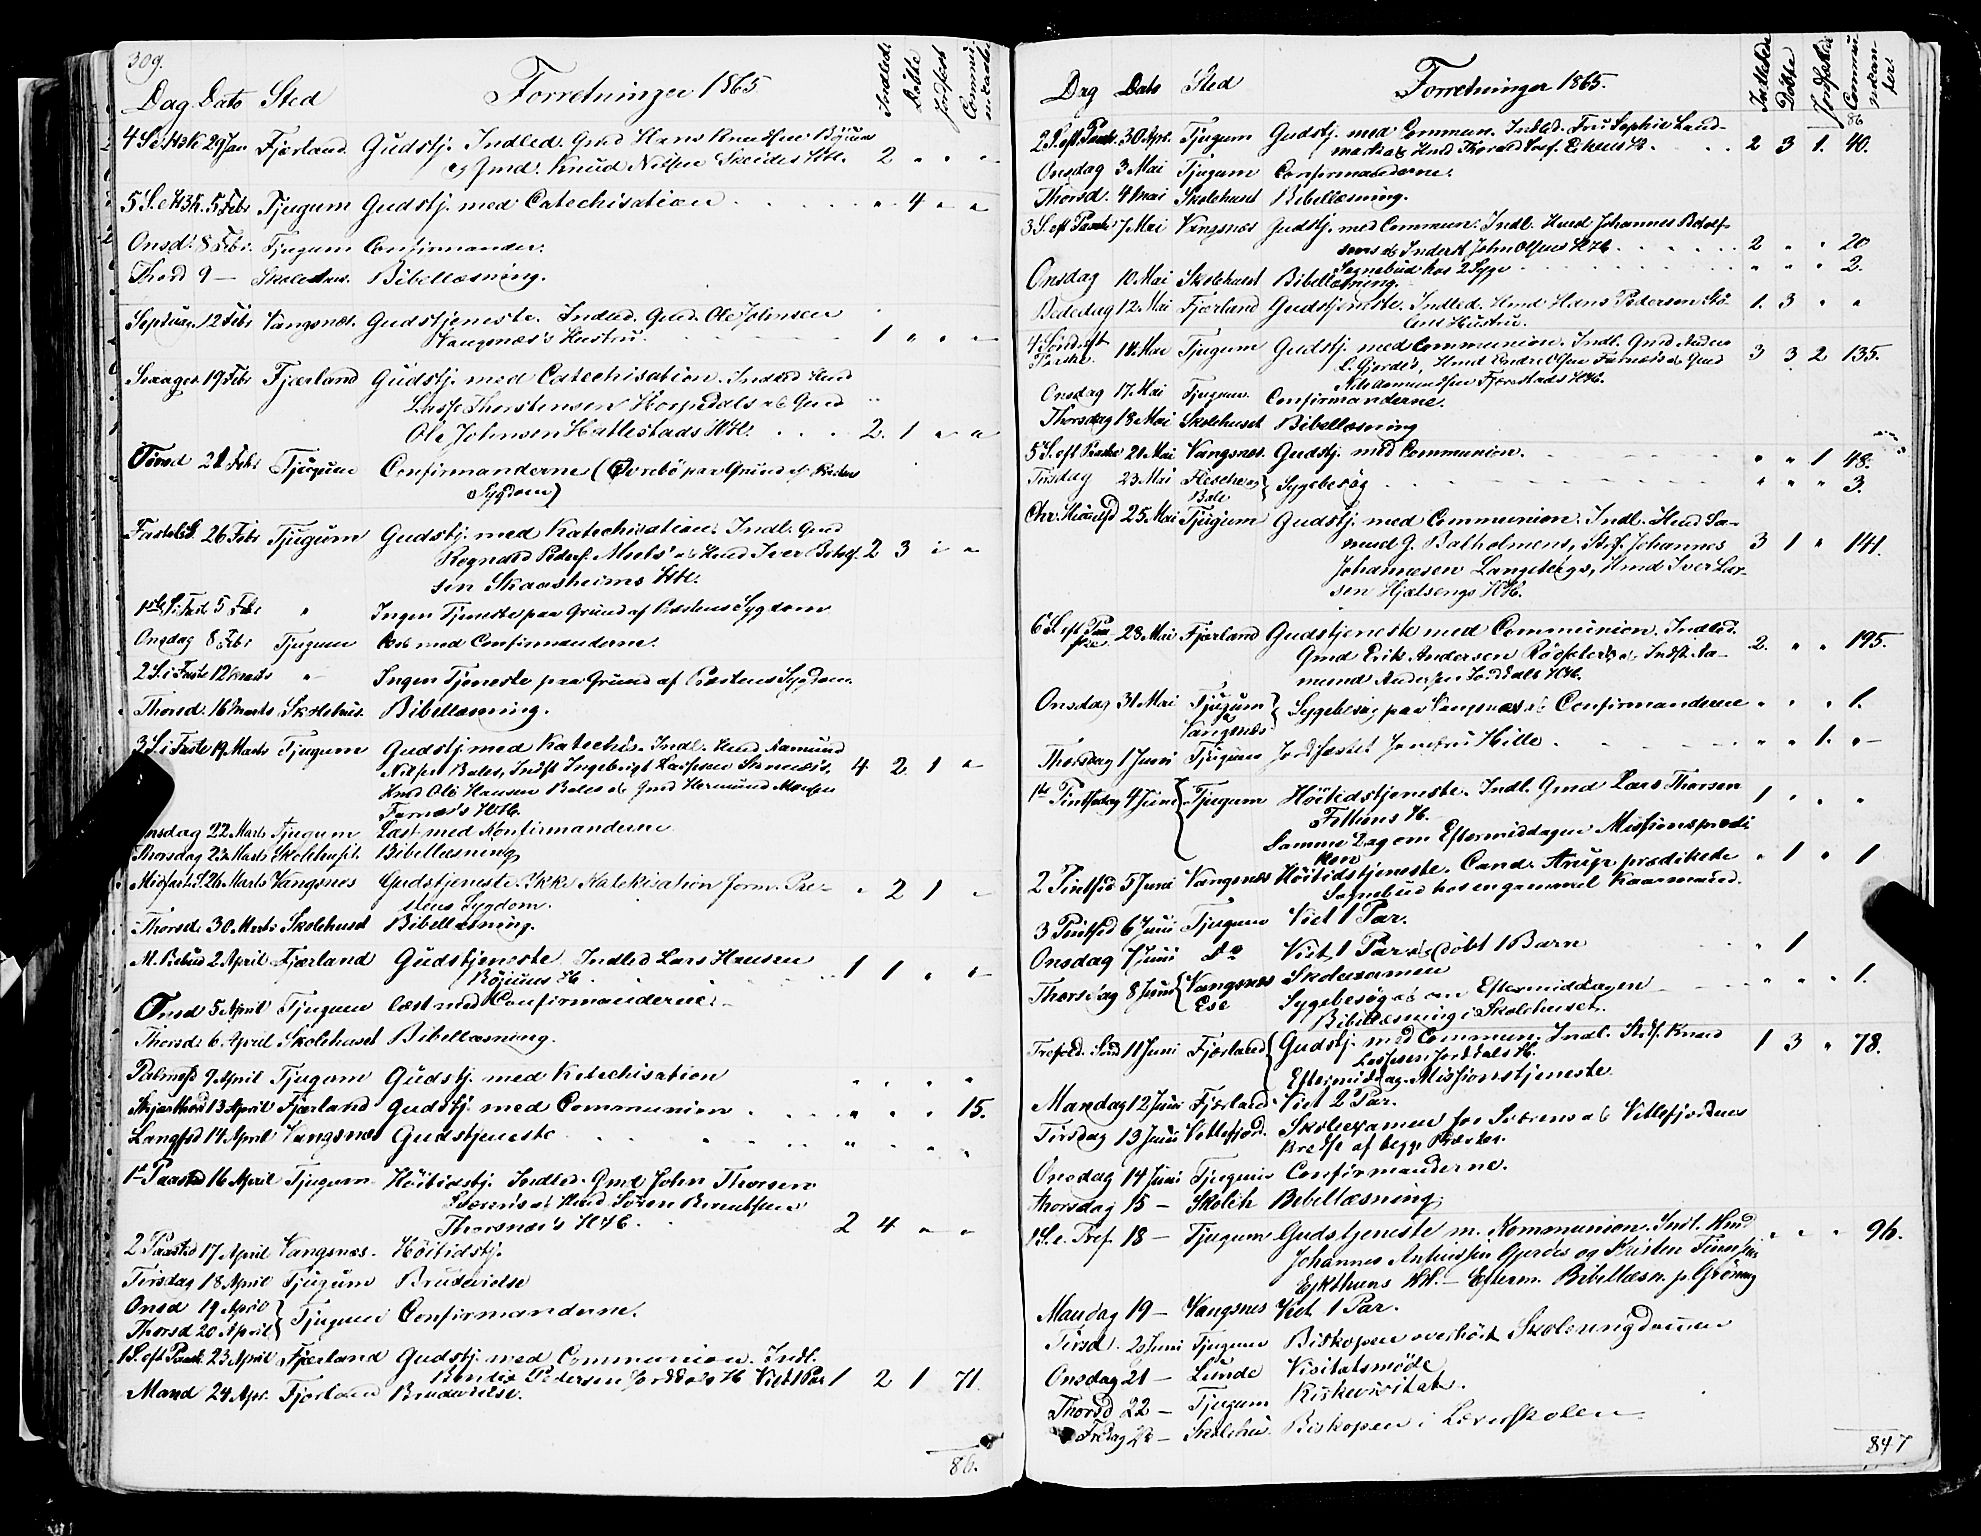 309.
Dag Dato Sted Forretninger 1865 Indled. Döbte Jordfest Communicanter
4 S. e. H3K 29 Jan Fjærland. Gudstj. Indled. Gmd Hans Knudsen Böjum
og Gmd. Knud Nilsen Skeides HH. 2 " " "
5 S. e H3K. 5 Febr Tjugum Gudstj. med Catechisation " 4 " "
Onsd. 8 Febr. Tjugum Confirmander.
Thord 9 — Skolehus. Bibellæsning.
Septuag. 12 Febr Vangsnæs. Gudstjeneste. Indled. Gmd. Ole Johnsen
Vangsnæs's Hustru. 1 " " "
Sexages 19 Febr Fjærland Gudstj. med Catechisation. Indled Hmd
Lasse Thorstensen Horpedals og Gmd
Ole Johnsen Hatlestads HH. 2. 1 " "
Tirsd 21 Febr Tjugum Confirmanderne (Övrebö paa Grund af Prestens
Sygdom)
Fastel. S. 26 Febr Tjugum Gudstj. med Katechisation. Indl. Gmd
Rognald Peders. Mels og Hmd Iver Botolf- 2 3 1 "
sen Skaasheims HH.
1ste S. i Fast 5 Febr " Ingen Tjeneste paa Grund af Prestens Sygdom
Onsdag 8 Febr Tjugum Læst med Confirmanderne.
2 S. i Faste 12 Marts " Ingen Tjeneste paa Grund af Præstens Sygdom.
Thorsd. 16 Marts Skolehus. Bibellæsning.
3 S. i Faste 19 Marts Tjugum Gudstj med Katechis. Indl. Hmd Aamund
Nilsen Bales, Indst Ingebrigt Larssen Stennæs's, 4 2 1 "
Hmd Ole Hansen Bales og Gmd Hermund Monsen
Farnæs's HH.
Onsdag 22 Marts Tjugum Læst med Konfirmanderne
Thorsdag 23 Marts Skolehuset. Bibellæsning
Midfast. S. 26 Marts Vangsnes Gudstjeneste. Ikke Katekisation form. Præ- " 2 1 "
stens Sygdom.
Thorsd. 30 Marts Skolehuset Bibellæsning.
M. Bebud 2 April Fjærland Gudstjeneste Indled Lars Hansen
Böjums H. 1 1 " "
Onsd 5 April Tjugum læst med Confirmanderne.
Thorsd. 6 April Skolehuset Bibellæsning.
Palmesd 9 April Tjugum Gudstj. med Katechisation " " " "
Skjærthorsd 13 April Fjærland Gudstj. med Communion " " " 15.
Langfrd 14 April Vangsnæs Gudstjeneste " " " "
1ste Paaskd 16 April Tjugum Höitidstj. Indled. Gmd John Thorsen
Sværens og Hmd Sören Berentsen
Thorsnæs's HH. 2 4 " "
2 Paaskd 17 April Vangsnes. Höitidstj.
Tirsdag 18 April Tjugum Brudevielse
Onsd 19 April
Thorsd 20 April } Tjugum Confirmanderne.
1 S. eft Paask. 23 April Fjærland Gudstj. med Communion. Indl.
Bendix Pedersen Jorddals H. Viet 1 Par 1 2 1 71.
Mand 24 Apr. Fjærland Brudevielse.
86.
Dag Dato Sted Forretninger 1865. Indledede Döbte Jordfæstede Communicanter
86
2 S. eft Paask. 30 Apr. Tjugum Gudstj. med Commun. Indled. Fru Sophie Land-
marks og Hmd Thorard Josf. Eskens H. 2 3 1. 40.
Onsdag 3 Mai Tjugum Confirmanderne.
Thorsd. 4 Mai Skolehuset Bibellæsning.
3 S. eft Paask 7 Mai Vangsnæs Gudstj. med Commun. Indl. Hmd Johannes Botolf-
sens og Inderst John Olsens HH. 2 " " 20
Sognebud hos 2 Syge " " " 2.
Onsdag 10 Mai Skolehuset Bibellæsning.
Bededag 12 Mai Fjærland Gudstjeneste. Indled. Hmd Hans Pedersen 1. 3 " "
Hustru.
4 Sönd. eft
Paaske. 14 Mai Tjugum Gudstj. med Communion. Indl. Gmd Anders
L. Gjerdes, Hmd Endre Olsen Farnæs's og Gmd 3 3 2 135.
Nils Aamundsen Fjærestads HH.
Onsdag 17 Mai Tjugum Confirmanderne.
Thorsdag 18 Mai Skolehuset Bibellæsning
5 S. eft Paaske 21 Mai Vangsnæs. Gudstj. med Communion. " " 1 48.
Tirsdag 23 Mai Flesche og
Bale } Sygebesög " " " 3.
Chr. Himmelfd 25 Mai Tjugum Gudstj. med Communion. Indl. Hmd Sa-
muel J. Batholmens, Strf. Johannes 3 1 " 141.
Johannesen Langebergs, Hmd Iver Lar-
sen Hjelsengs HH.
6 S. eft Paa
ske 28 Mai Fjærland Gudstjeneste med Communion. Indled.
Gmd Erik Andersen Rödseters og Indst. Aa- 2. " " 195.
mund Andersen Jorddals HH.
Onsdag 31 Mai Tjugum
og
Vangsnæs } Sygebesög paa Vangsnæs og Confirmanderne " " " 1.
Thorsdag 1 Juni Tjugum Jordfæstet Jomfru Hille. " " 1. "
1ste Pintsedag 4 Juni Tjugum Höitidstjeneste. Indl. Gmd Lars Thorsen 1 " " "
Fettens H.
Samme Dag om Eftermiddagen Missionspredi-
ken
2 Pintsed 5 Juni Vangsnæs Höitidstjeneste. Cand. Arup prædikede " 1 " 1
Sognebud hos en gammel Kaarmand.
3 Pintsd 6 Juni Tjugum Viet 1 Par.
Onsdag 7 Juni do Viet 1 Par og döbt 1 Barn " 1
Thorsdag 8 Juni { Vangsnes Skolexamen
Ese Sygebesög og om Eftermiddagen " " " 1.
Bibellæsning i Skolehuset.
Trefold. Sönd 11 Juni Fjærland { Gudstj. med Commun. Indl. Strf. Knud 1 3 " 78.
Lassesen Jorddals H.
Eftermiddag Missionstjeneste
Mandag 12 Juni Fjærland Viet 2 Par.
Tirsdag 13 Juni Vetlefjord. Skoleexamen for Sværens og Vetlefjordens
Kredse af begge Præster.
Onsdag 14 Juni Tjugum Confirmanderne.
Thorsdag 15 — Skoleh Bibellæsning
1 S. e. Tref. 18 — Tjugum Gudstjeneste m. Kommunion. Indl. Hmd " " " 96.
Johannes Gjerdes og Kristen
HH. — Efterm. Bibellæsn. p. Gröning
Mandag 19 — Vangsnes Viet 1 Par.
Tirsd. 20 Juni Tjugum Biskopen overhört Skoleungdommen
Onsdag 21 — Lunde Visitatsmöde
Thorsd 22 — Tjugum Kirkevisitats.
Fredag 23 — Skolehus Biskopen i Lærerskolen
847